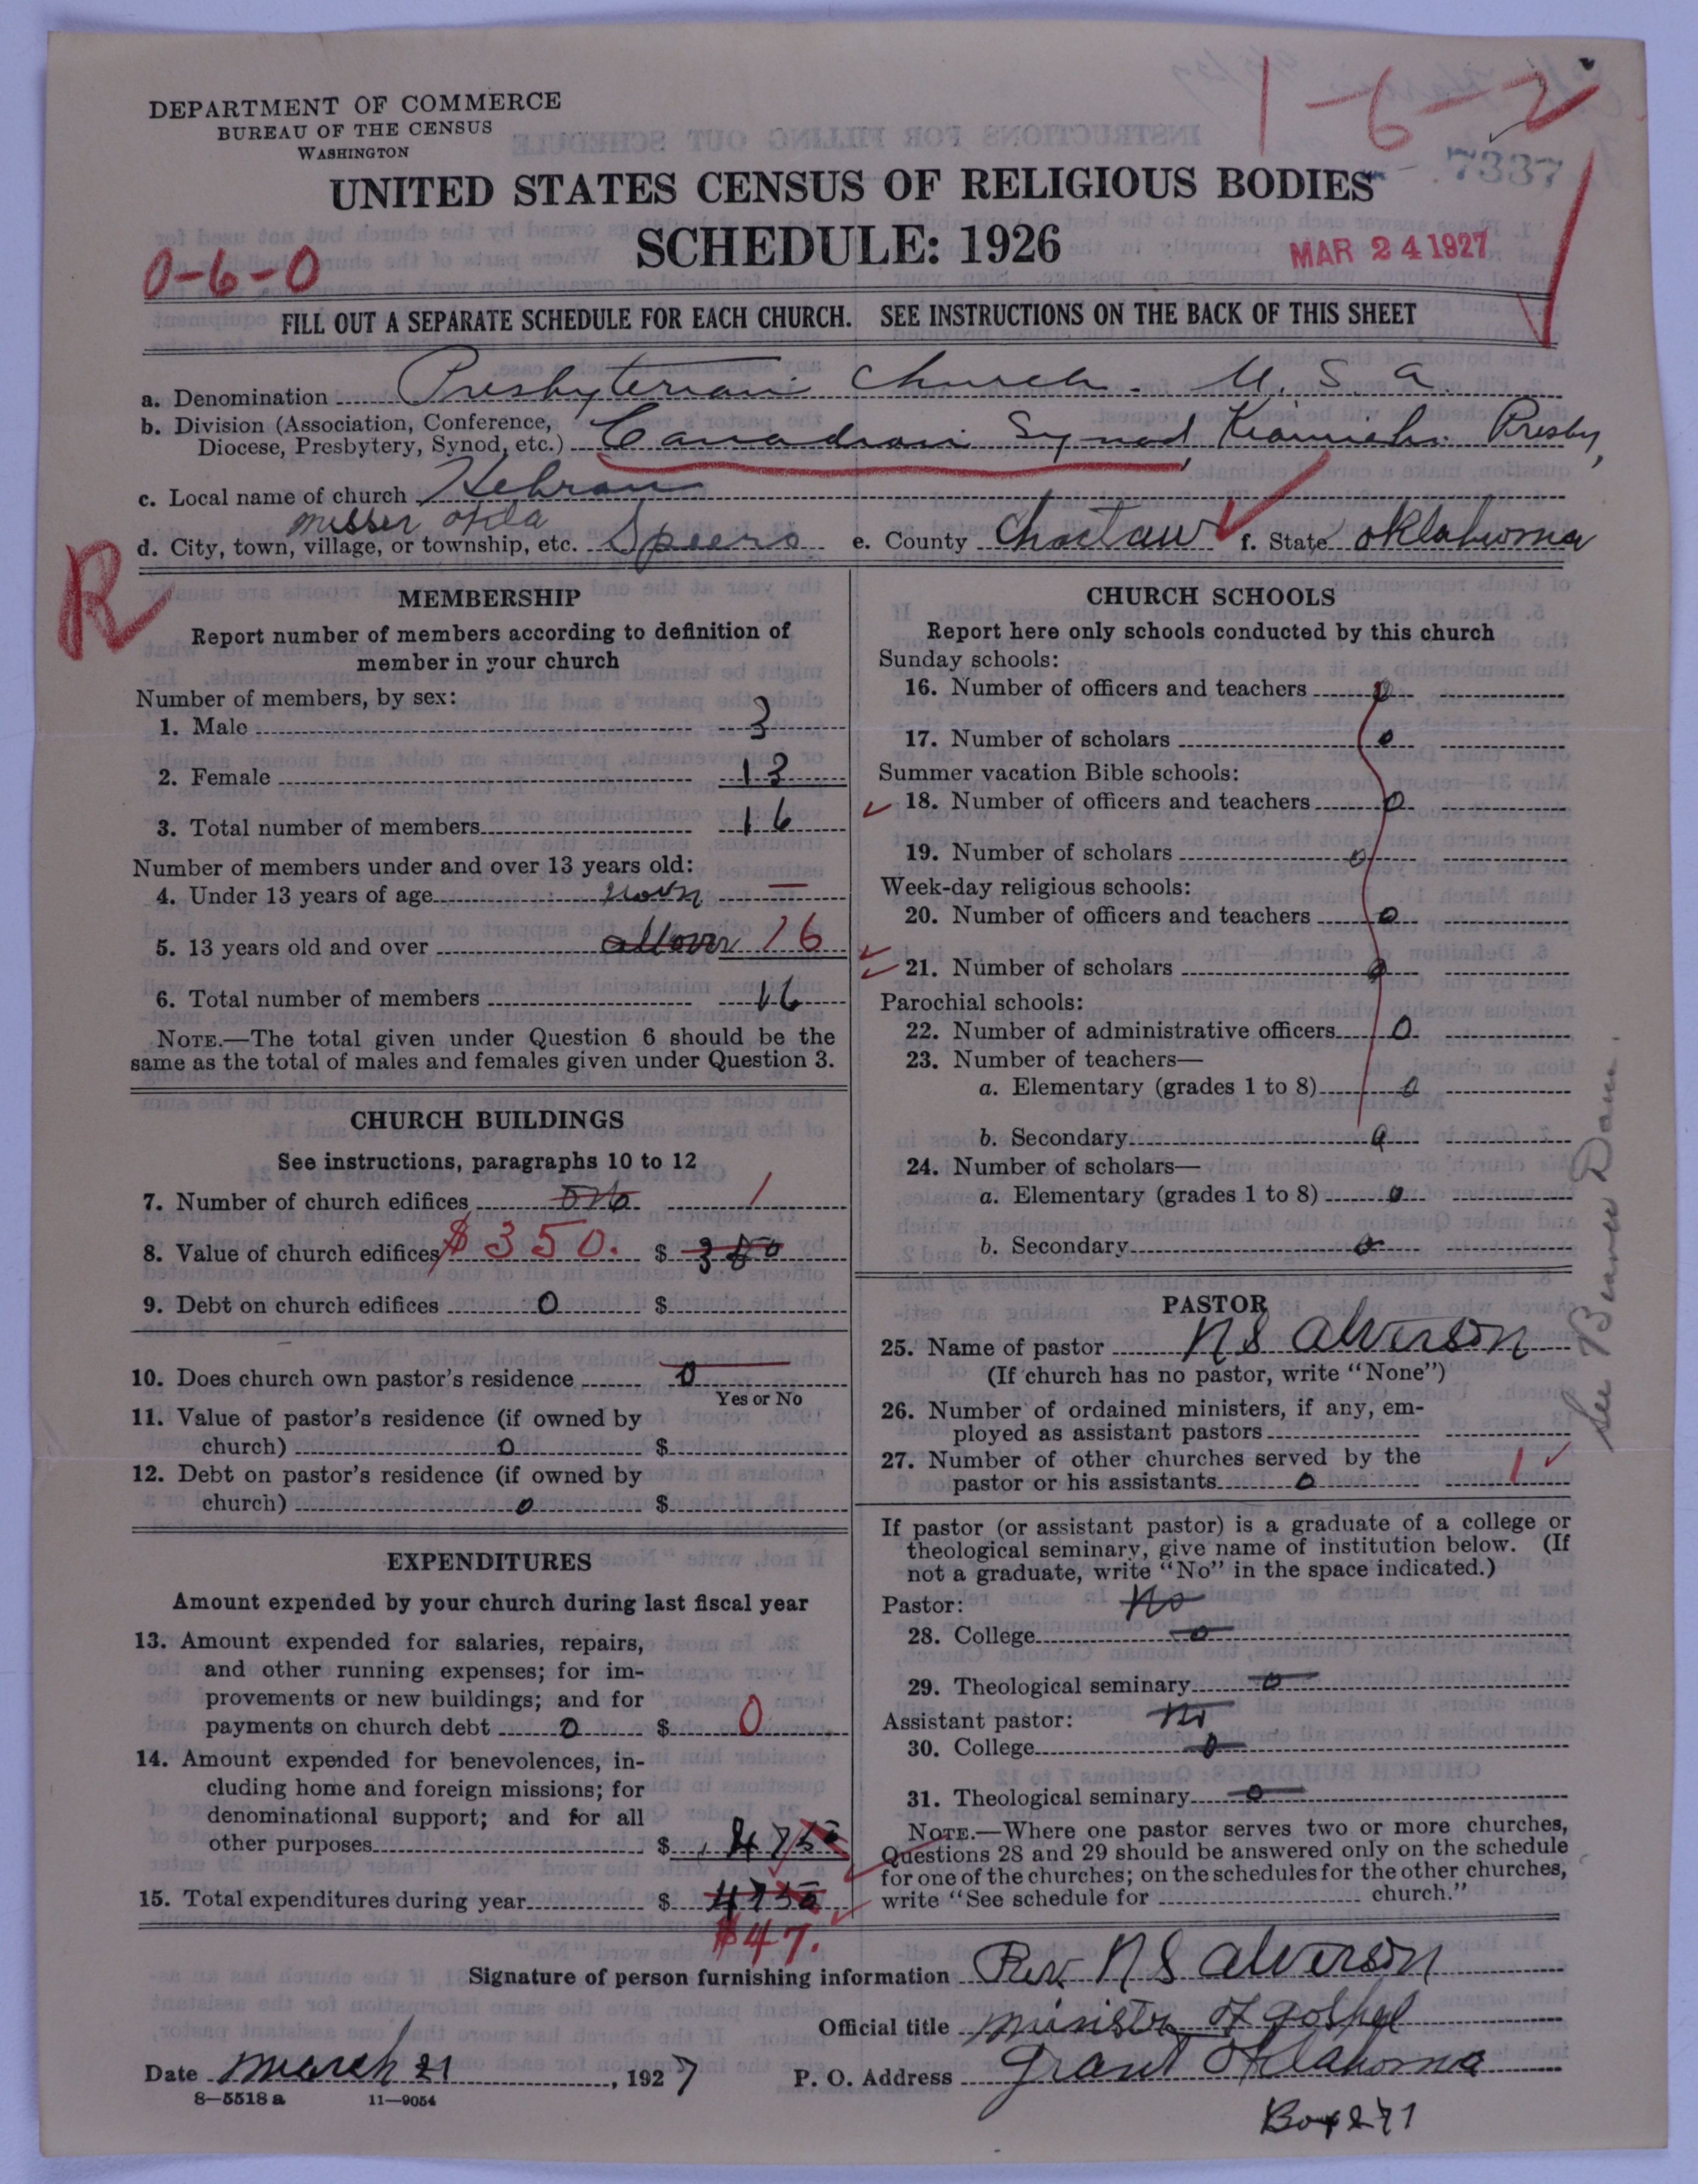 DEPARTMENT OF COMMERCE
BUREAU OF THE CENSUS
WASHINGTON
1-6-2
7337
UNITED STATES CENSUS OF RELIGIOUS BODIES
SCHEDULE: 1926
MAR 24 1927
0-6-0
FILL OUT A SEPARATE SCHEDULE FOR EACH CHURCH. SEE INSTRUCTIONS ON THE BACK OF THIS SHEET
a. Denomination Presbyterian Church. U. S. A
b. Division (Association, Conference, Diocese, Presbytery, Synod, etc.) Canadian Synod, Kiamichi Presby,
c. Local name of church Hebron
Messer Okla
d. City, town, village, or township, etc. Speers e. County Choctaw f. State Oklahoma
R
MEMBERSHIP
Report number of members according to definition of
member in your church
Number of members, by sex:
1. Male 3
2. Female 13
3. Total number of members 16
Number of members under and over 13 years old:
4. Under 13 years of age —
5. 13 years old and over all over 16
6. Total number of members 16
NOTE.—The total given under Question 6 should be the
same as the total of males and females given under Question 3.
CHURCH BUILDINGS
See instructions, paragraphs 10 to 12
7. Number of church edifices 1
8. Value of church edifices $350. $ 350
9. Debt on church edifices 0 $
10. Does church own pastor's residence 0
Yes or No
11. Value of pastor's residence (if owned by
church) 0 $
12. Debt on pastor's residence (if owned by
church) 0 $
EXPENDITURES
Amount expended by your church during last fiscal year
13. Amount expended for salaries, repairs,
and other running expenses; for im-
provements or new buildings; and for
payments on church debt 0 $ 0
14. Amount expended for benevolences, in-
cluding home and foreign missions; for
denominational support; and for all
other purposes $ 47 50
15. Total expenditures during year $ 47 50
$47.
CHURCH SCHOOLS
Report here only schools conducted by this church
Sunday schools:
16. Number of officers and teachers 0
17. Number of scholars 0
Summer vacation Bible schools:
18. Number of officers and teachers 0
19. Number of scholars 0
Week-day religious schools:
20. Number of officers and teachers 0
21. Number of scholars 0
Parochial schools:
22. Number of administrative officers 0
23. Number of teachers—
a. Elementary (grades 1 to 8) 0
b. Secondary 0
24. Number of scholars—
a. Elementary (grades 1 to 8) 0
b. Secondary 0
PASTOR
25. Name of pastor N S Alverson
(If church has no pastor, write "None")
26. Number of ordained ministers, if any, em-
ployed as assistant pastors
27. Number of other churches served by the
pastor or his assistants 0 1
If pastor (or assistant pastor) is a graduate of a college or
theological seminary, give name of institution below. (If
not a graduate, write "No" in the space indicated.)
Pastor: No
28. College 0
29. Theological seminary 0
Assistant pastor: No
30. College 0
31. Theological seminary 0
NOTE.—Where one pastor serves two or more churches,
Questions 28 and 29 should be answered only on the schedule
for one of the churches; on the schedules for the other churches,
write "See schedule for church."
See Beaver Dam.
Signature of person furnishing information Rev. N S Alverson
Official title minister of gospel
Date March 21, 1927 P. O. Address Grant Oklahoma
8—5518 a 11—9054
Box 271